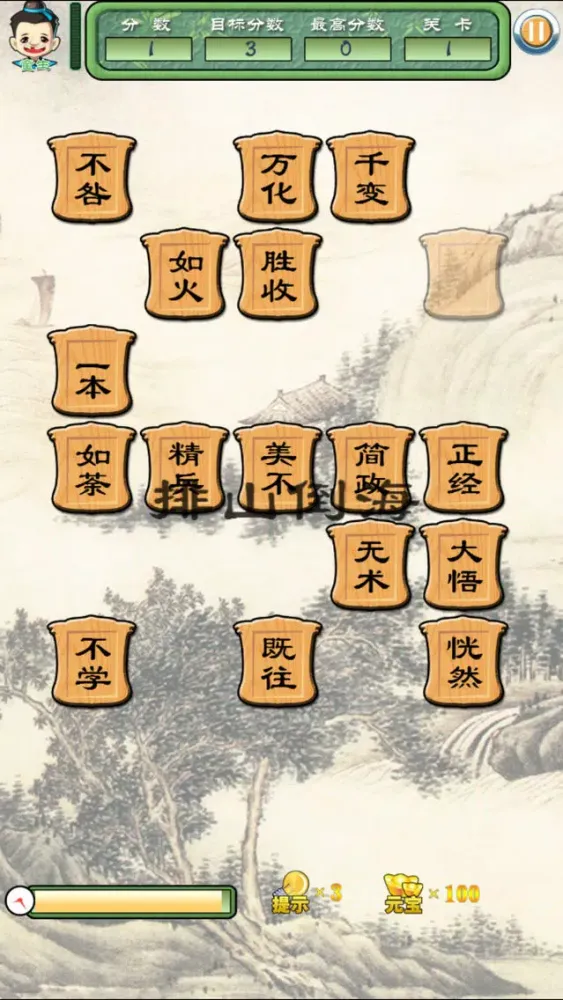 分数 目标分数 最高分数 关卡
1 3 0 1
不咎 万化 千变
如火 胜收
一本
如荼 精兵 美不 简政 正经
排山倒海
无术 大悟
不学 既往 恍然
提示 ×3 元宝 ×100